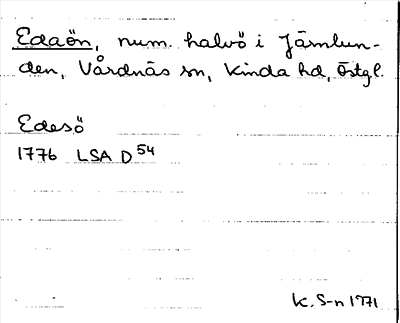 Edaön, num. halvö i Järnlun-
den, Vårdnäs sn, Kinda hd, Östgl.
Edesö
1776 LSA D 54
K. S-n 1971